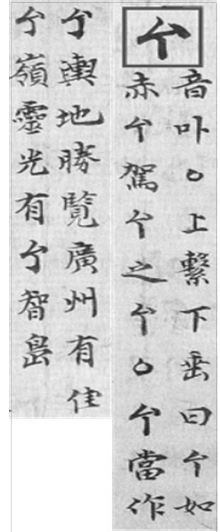 个
音卟○上繫下垂曰个如
赤个駕个之个○个當作
亇輿地勝覽廣州有佳
亇嶺靈光有亇智島